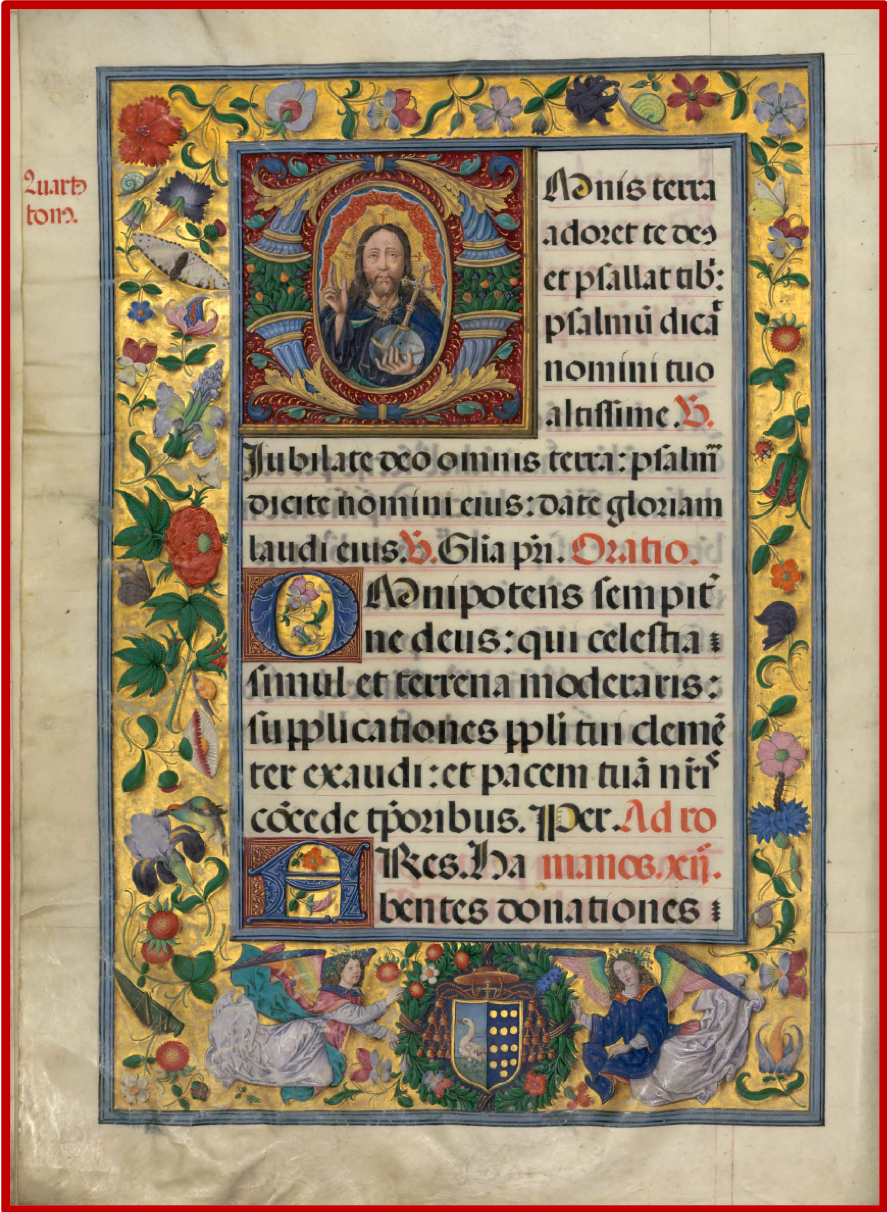 Quartꝰ
tomꝰ.
OMnis terra
adoret te deꝰ
et psallat tib:
psalmū dicāt
nomini tuo
altissime. V.
Jubilate deo omnis terra: psalm̄
dicite nomini eius: date gloriam
laudi eius. V. Gl̄ia pr̄i. Oratio.
OMnipotens sempit̄
ne deus: qui celestia
simul et terrena moderaris:
supplicationes ppl̄i tui clemē
ter exaudi: et pacem tuā nr̄is
cōcede tp̄oribus. Per. Ad ro
ARes. Ha manos. xij.
bentes donationes